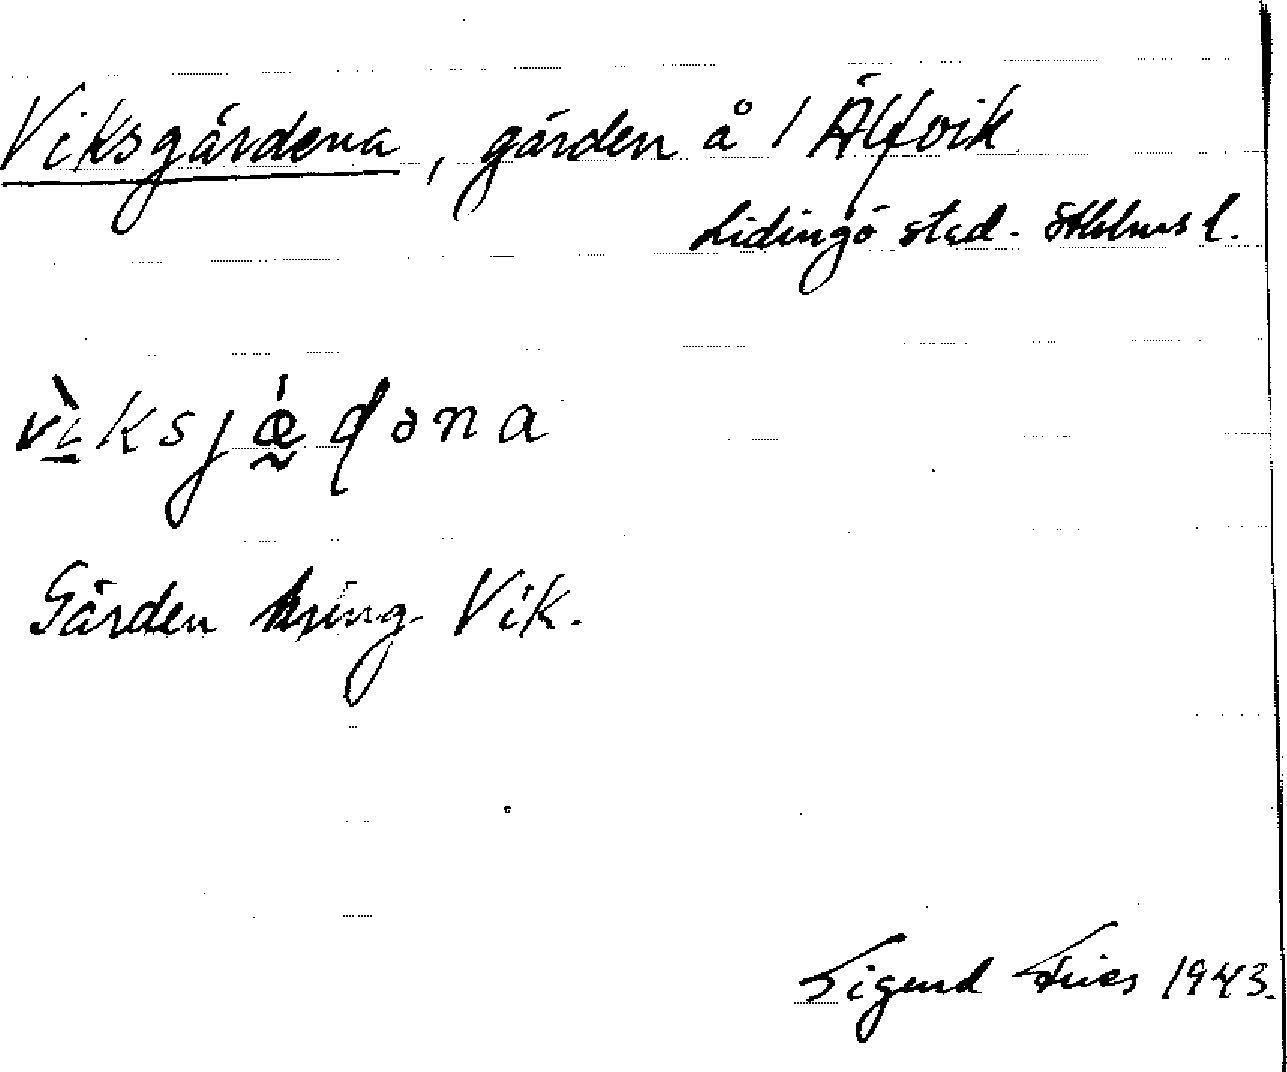 Viksgärdena, gärden å 1 Älfvik
Lidingö stad. Sthlms l.
vɩ̀ksjǽ̰ḍəna
Gärden kring Vik.
Sigurd Fries 1943.